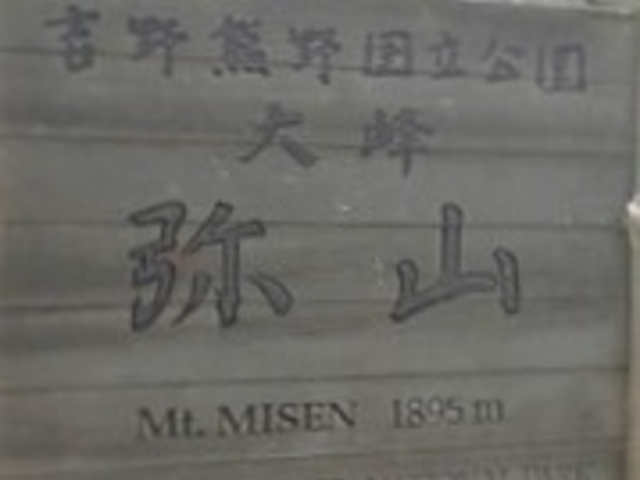 吉野熊野国立公園
大峰
弥山
Mt. MISEN 1895 m
NATIONAL PARK